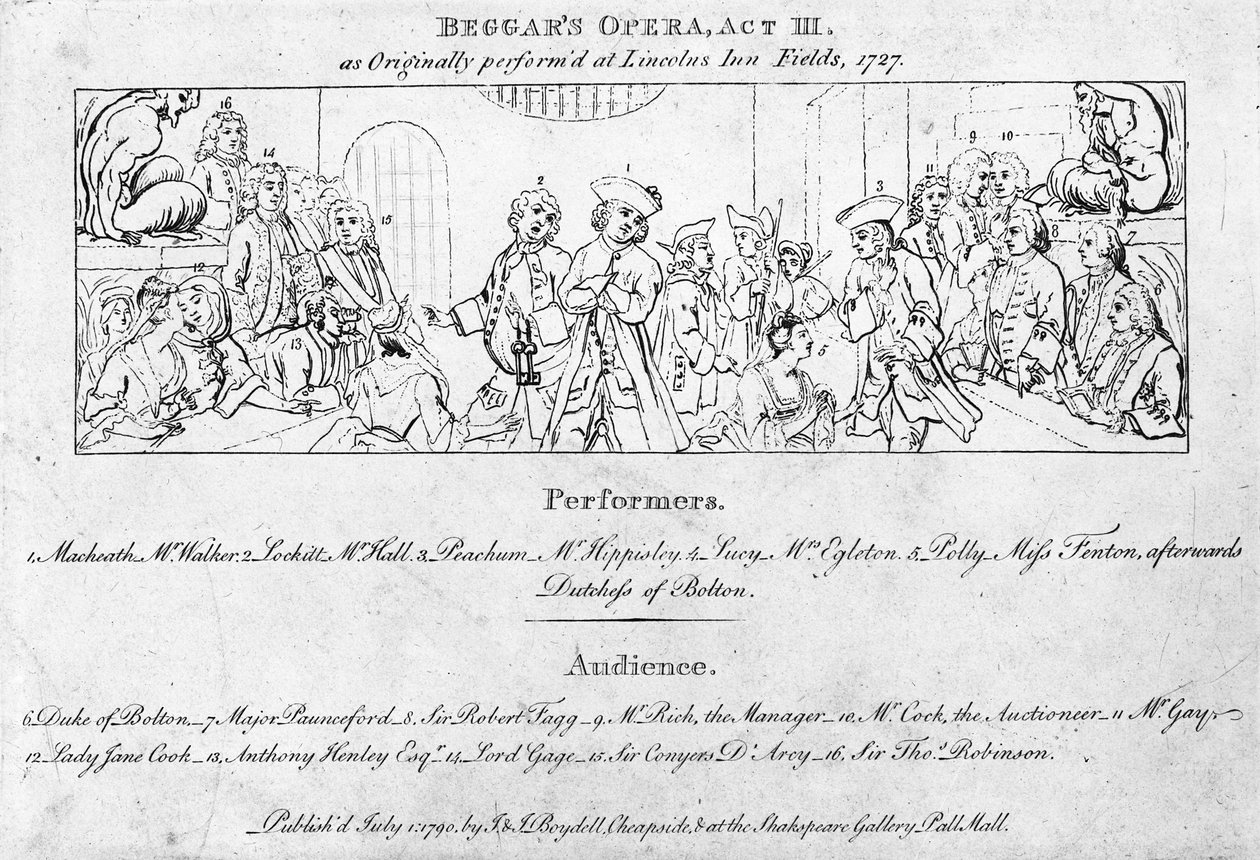 BEGGAR'S OPERA, ACT III.
as Originally perform'd at Lincolns Inn Fields, 1727.
16
14
15
12
13
2
1
3
11
9
10
8
7
6
5
Performers.
1, Macheath_Mr. Walker. 2_Lockitt_Mr. Hall. 3_Peachum_Mr. Hippisley. 4_Lucy_Mrs. Egleton. 5_Polly_Miſs Fenton, afterwards
Dutcheſs of Bolton.
Audience.
6_Duke of Bolton._7_Major Paunceford_8. Sir Robert Fagg_9, Mr. Rich, the Manager_10. Mr. Cock, the Auctioneer_11 Mr. Gay,
12_Lady Jane Cook_13. Anthony Henley Esqr. 14_Lord Gage_15. Sir Conyers D'Arcy_16. Sir Thos. Robinson.
Publish'd July 1: 1790. by J. & J. Boydell, Cheapside, & at the Shakspeare Gallery Pall Mall.